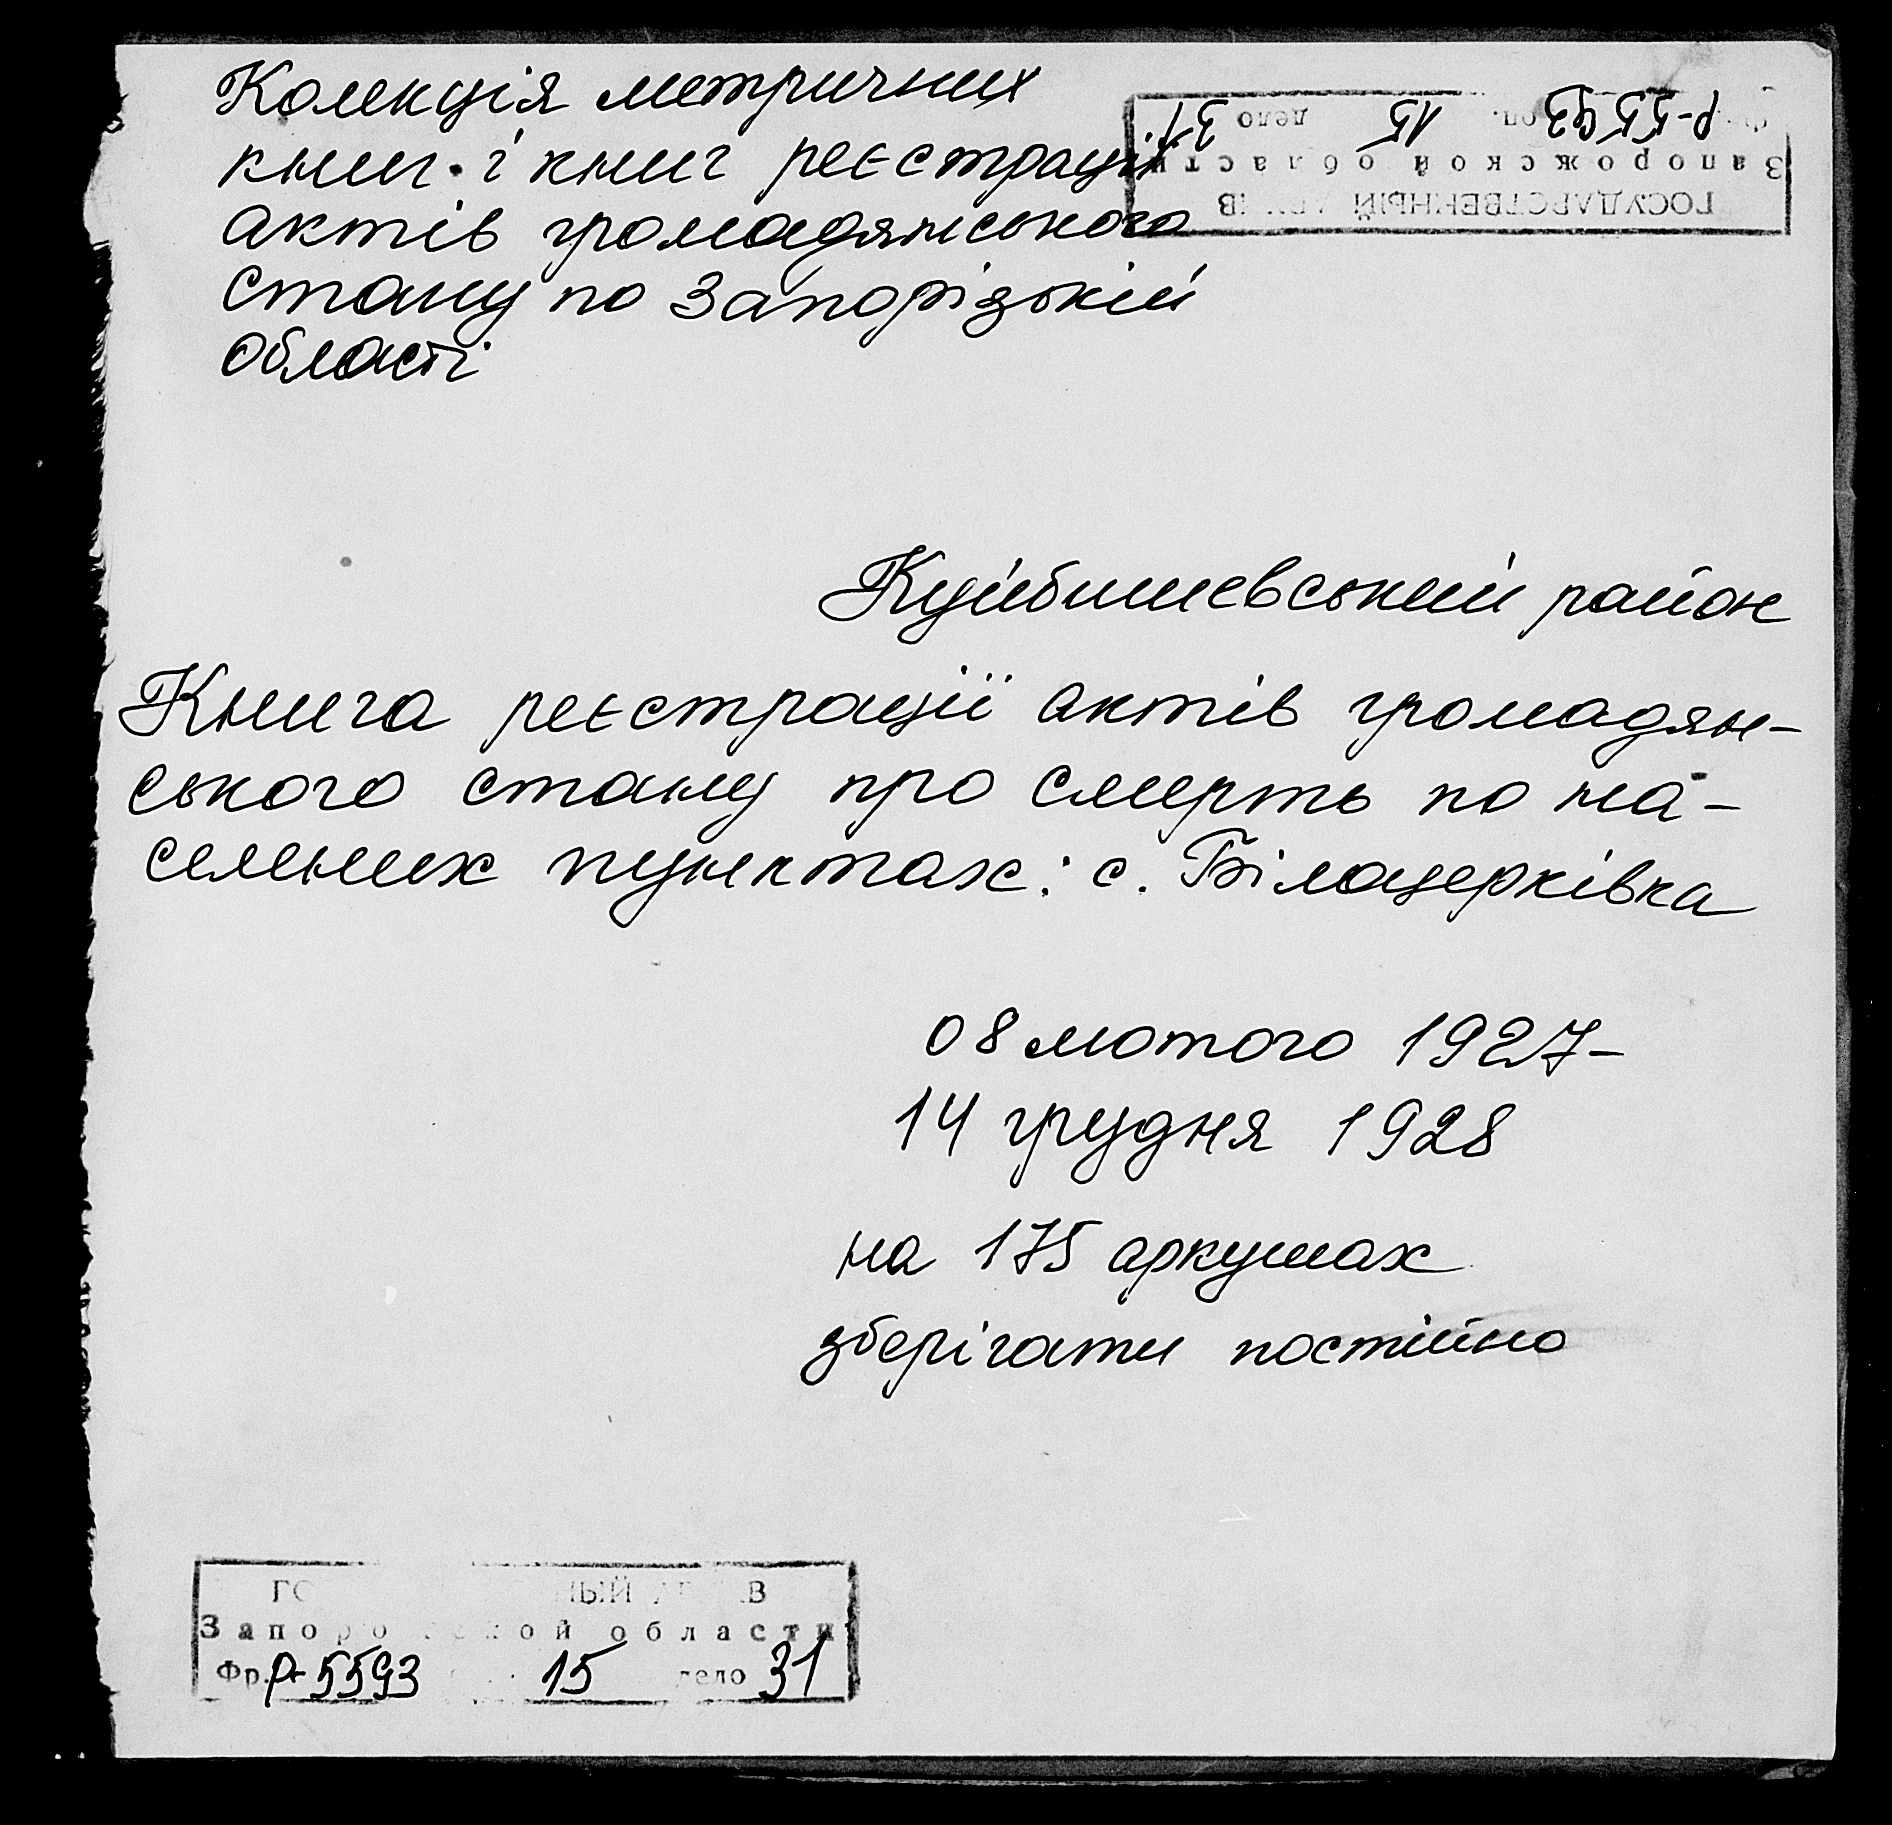 Колекція метричних
книг і книг реєстрації
актів громадянського
стану по Запорізькій
області
ГОСУДАРСТВЕННЫЙ АРХИВ
Запорожской области
Фр. Р-5593 оп. 15 дело 31
Куйбишевський район
Книга реєстрації актів громадян-
ського стану про смерть по на-
селених пунктах: с. Білоцерківка
08 лютого 1927-
14 грудня 1928
на 175 аркушах
зберігати постійно
ГОСУДАРСТВЕННЫЙ АРХИВ
Запорожской области
Фр. Р-5593 15 дело 31